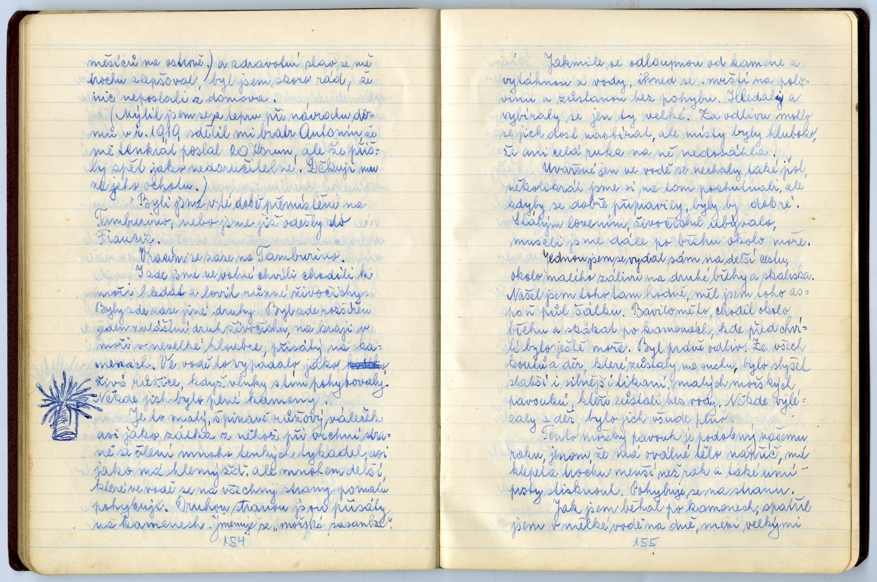 měsíců na ostrově.) a zdravotní stav se mě
trochu zlepšoval, byl jsem skoro rád, že
nic neposlali z domova.
(Mýlil jsem se, a teprv při návratu do-
mů v r. 1919 sdělil mi bratr Antonín, že
mě tenkrát poslal 20 korun, ale že přiš-
ly zpět jako nedoručitelné. Děkuji mu
za jeho ochotu.)
Byli jsme v té době přemístěni na
Tamburino, nebo jsme již odešli do
Francie.
Vracím se zase na Tamburino.
Zase jsme ve volné chvíli chodili k
moři hledat a lovit různé živočichy.
Byly zde zase jiné druhy. Byl zde rozšířen
jeden zvláštní druh živočichu, na kraji v
moři v nevelké hloubce, přisátý na ka-
menech. Ve vodě to vypadalo jako
živá růžice, když vlnky s tím pohybovaly.
Někde jich bylo plné kameny.
Je to malý, špinavě růžový váleček
asi jako zátka z něhož při vrchní stra-
ně se člení mnoho tenkých tykadel, asi
jako má hlemýžď, ale mnohem delší,
které ve vodě se na všechny strany pomalu
pohybují. Druhou stranou jsou přisáty
na kamenech. Jmenuje se „mořská sasanka".
154
Jakmile se odloupnou od kamene a
vytáhnou z vody, ihned se smrští na polo-
vinu a zůstanou bez pohybu. Hledaly a
vybíraly se jen ty velké. Za odlivu mohly
se jich dost nasbírat, ale místy byly hluboko,
že ani celá ruka na ně nedosáhla.
Uvařené jen ve vodě se nechaly také jíst,
několikrát jsme si na tom pochutnali, ale
kdyby se dobře připravily, byly by dobré.
Stálým lovením, živočichů ubývalo,
museli jsme dále po břehu okolo moře.
Jednou jsem se vydal sám na delší cestu,
okolo malého zálivu na druhé břehy a skaliska.
Našel jsem toho tam hodně, měl jsem toho as-
poň půl šálku. Bavilo mělo, chodil okolo
břehu a skákal po kamenech, kde před chví-
lí bylo ještě moře. Byl právě odliv. Ze všech
koutů a děr, které zůstaly na suchu, bylo slyšet
slabší i silnější tikání, malých mořských
pavouků, kteří zůstali bez vody. Někde vylé-
zaly z děr, bylo jich všude plno.
Tento mořský pavouk je podobný našemu
raku, jenom že má oválné tělo napříč, má
klepeta trochu menší než rak a také umí
prsty stisknout. Pohybuje se na stranu.
Jak jsem běhal po kamenech, spatřil
jsem v mělké vodě na dně, mezi velkými
155